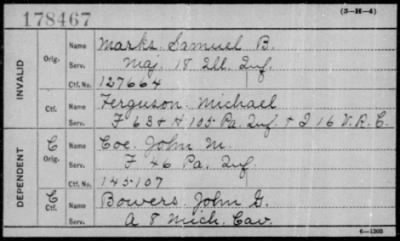 178467 (3-H-4)
INVALID
Orig. Name Marks Samuel B.
Serv. Maj. 18 Ill. Inf.
Ctf. No. 127664
Ctf. Name Ferguson Michael
Serv. F 63 & A 105 Pa. Inf. & I 16 V.R.C.
DEPENDENT
C Orig. Name Coe, John M.
Serv. F 46 Pa. Inf.
Ctf. No. 145107
C Ctf. Name Bowers John G.
Serv. A 8 Mich. Cav.
6-1305